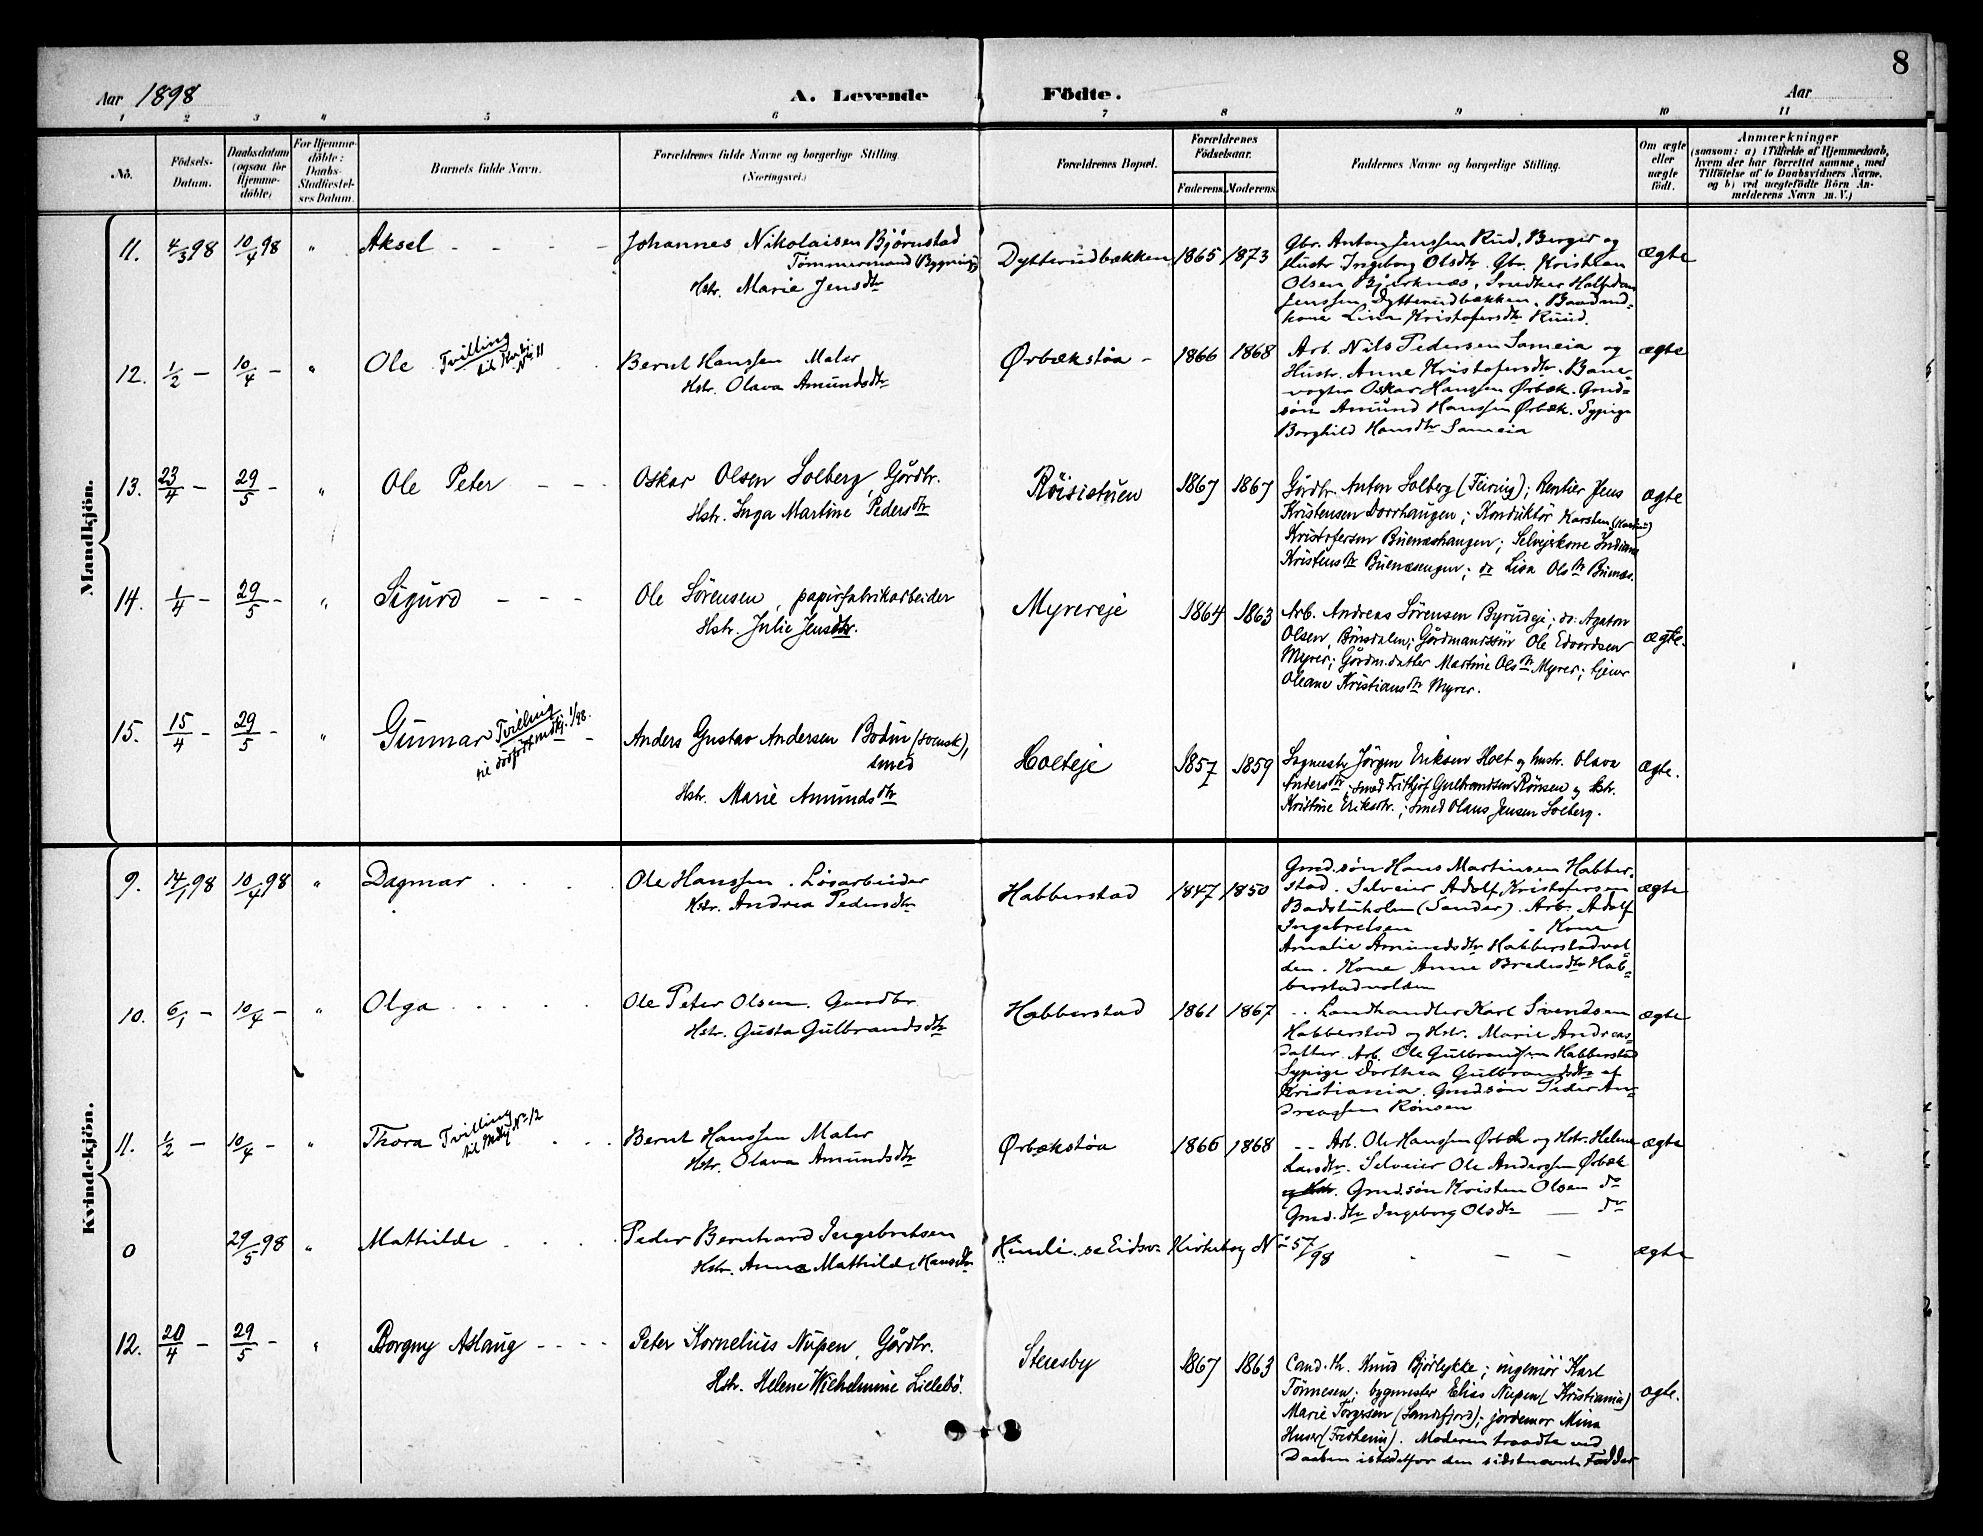 8
Aar 1898 A. Levende Födte. Aar
1 2 3 4 5 6 7 8 9 10 11
No. Födsels-Datum. Daabsdatum (ogsaa for Hjemme-döbte) For Hjemme-döbte: Daabs-Stadfæstel-ses Datum. Barnets fulde Navn. Forældrenes fulde Navne og borgerlige Stilling. (Næringsvei.) Forældrenes Bopæl. Forældrenes Födselsaar. Faderens. Moderens. Faddernes Navne og borgerlige Stilling. Om ægte eller uægte födt. Anmærkninger
(saasom: a) i Tilfælde af Hjemmedaab,
hvem der har forrettet samme, med
Tilföielse af to Daabsvidners Navne.
og b) ved uægtefödte Börn An-
melderens Navn m. V.)
Mandkjön.
11. 4/3 98 10/4 98 " Aksel - - - - Johannes Nikolaisen Bjørnstad
Tømmermand Bygnings
Hstr. Marie Jensdtr
Dytterudbækken 1865 1873
Gbr. Anton Jenssen Rud, Berger og
Hustr. Ingeborg Olsdtr. Gbr. Kristian
Olsen Bjerknæs, Snedker Halfdan
Jenssen, Dytterudbækken, Baadmd-
kone Lina Kristofersdtr Ruud.
ægte
12. 1/2 - 10/4 - " Ole Tvilling til Kvdkj. No 11
Bernt Hanssen Maler
Hstr. Olava Amundsdtr
Ørbækstøa - 1866 1868
Arb. Nils Pedersen Sameia og
Hustr. Anne Kristofersdtr. Bane-
vogter Oskar Hanssen Ørbæk. Gmd-
søn Amund Hanssen Ørbæk. Sypige
Borghild Hansdtr Sameia
ægte
13. 23/4 - 29/5 - " Ole Peter - - - Oskar Olsen Solberg, Gårdbr.
Hstr. Inga Martine Pedersdtr
Röisistuen 1867 1867
Gårdbr. Anton Solberg (Fëiring); Rentier Jens
Kristensen Dorrhaugen; Konduktör Karsten
Kristofersen Buenæshaugen; Selveierkone Indiana
Kristensdtr Buenæsengen; do Lisa Olsdtr Buenæs.
ægte
14. 1/4 - 29/5 - " Sigurd - - - Ole Sörensen, papirfabrikarbeider
Hstr. Julie Jensdtr.
Myrereje 1864 1863
Arb. Andreas Sörensen Byrudeje; do. Agaton
Olsen, Bönsdalen; Gårdmandssön Ole Edvardsen
Myrer; Gårdm.datter Martine Olsdtr Myrer; tjener
Oleane Kristiansdtr Myrer.
ægte.
15. 15/4 - 29/5 - " Gunnar Tvilling til dödfödt mdkj. 1/98. -
Anders Gustav Andersen Bodin (svensk),
smed
Hstr. Marie Amundsdtr
Holteje 1857 1859
Sognesty Jörgen Eriksen Holt og hustr. Olava
Andersdtr; smed Frithjof Gulbrandsen Rönsen og hstr.
Kristine Eriksdtr.; smed Olaus Jensen Solberg.
ægte.
Kvindekjön.
9. 14/1 98 10/4 98 " Dagmar . . . . Ole Hanssen. Løsarbeider
Hstr. Andrea Pedersdtr
Habberstad 1847 1850
Gmd.søn Hans Martinsen Habber-
stad. Selveier Adolf Kristofersen
Badstuholen (Sander). Arb. Adolf
Ingebretsen " Kone
Amalie Amundsdtr Habberstadvol-
den. Kone Anne Bredesdtr Hab-
berstadvolden
ægte
10. 6/1 - 10/4 - " Olga . . . . Ole Peter Olsen. Gaardbr.
Hstr. Gusta Gulbrandsdtr
Habberstad 1861 1867
.. Landhandler Karl Svendsen
Habberstad og Hstr. Marie Andreas-
datter. Arb. Ole Gulbrandsen Habberstad
Sypige Dorthea Gulbrandsdtr af
Kristiania. Gmdsøn Peder An-
dreassen Rønsen
ægte
11. 1/2 - 10/4 - " Thora Tvilling til Mdkj No 12
Bernt Hanssen Maler
Hstr. Olava Amundsdtr
Ørbækstøa 1866 1868
.. Arb. Ole Hanssen Ørbæk og Hstr. Helene
Larsdtr. Selveier Ole Anderssen Ørbæk
og Hstr. Gmd.søn Kristen Olsen do
Gmd.dtr Ingeborg Olsdtr — do
ægte
0 29/5 98 " Mathilde . . . Peder Bernhard Ingebretsen
Hstr. Anna Mathilde Hansdtr
Himli. se Eidsv. Kirkebog No 57/98 - - - ægte
12. 20/4 - 29/5 - " Borgny Aslaug - - - - Peter Kornelius Nupen, Gårdbr.
Hstr. Helene Wilhelmine Lillebö.
Stensby 1867 1863
Cand. th. Knud Bjørlykke; ingeniör Karl
Tönnesen; bygmester Elias Nupen (Kristiania)
Marie Torgersen (Sandefjord); jordemor Mina
Huser (Fredheim). Moderen traadte ved
Daaben istedetfor den sidstnævnte Fadder
ægte.